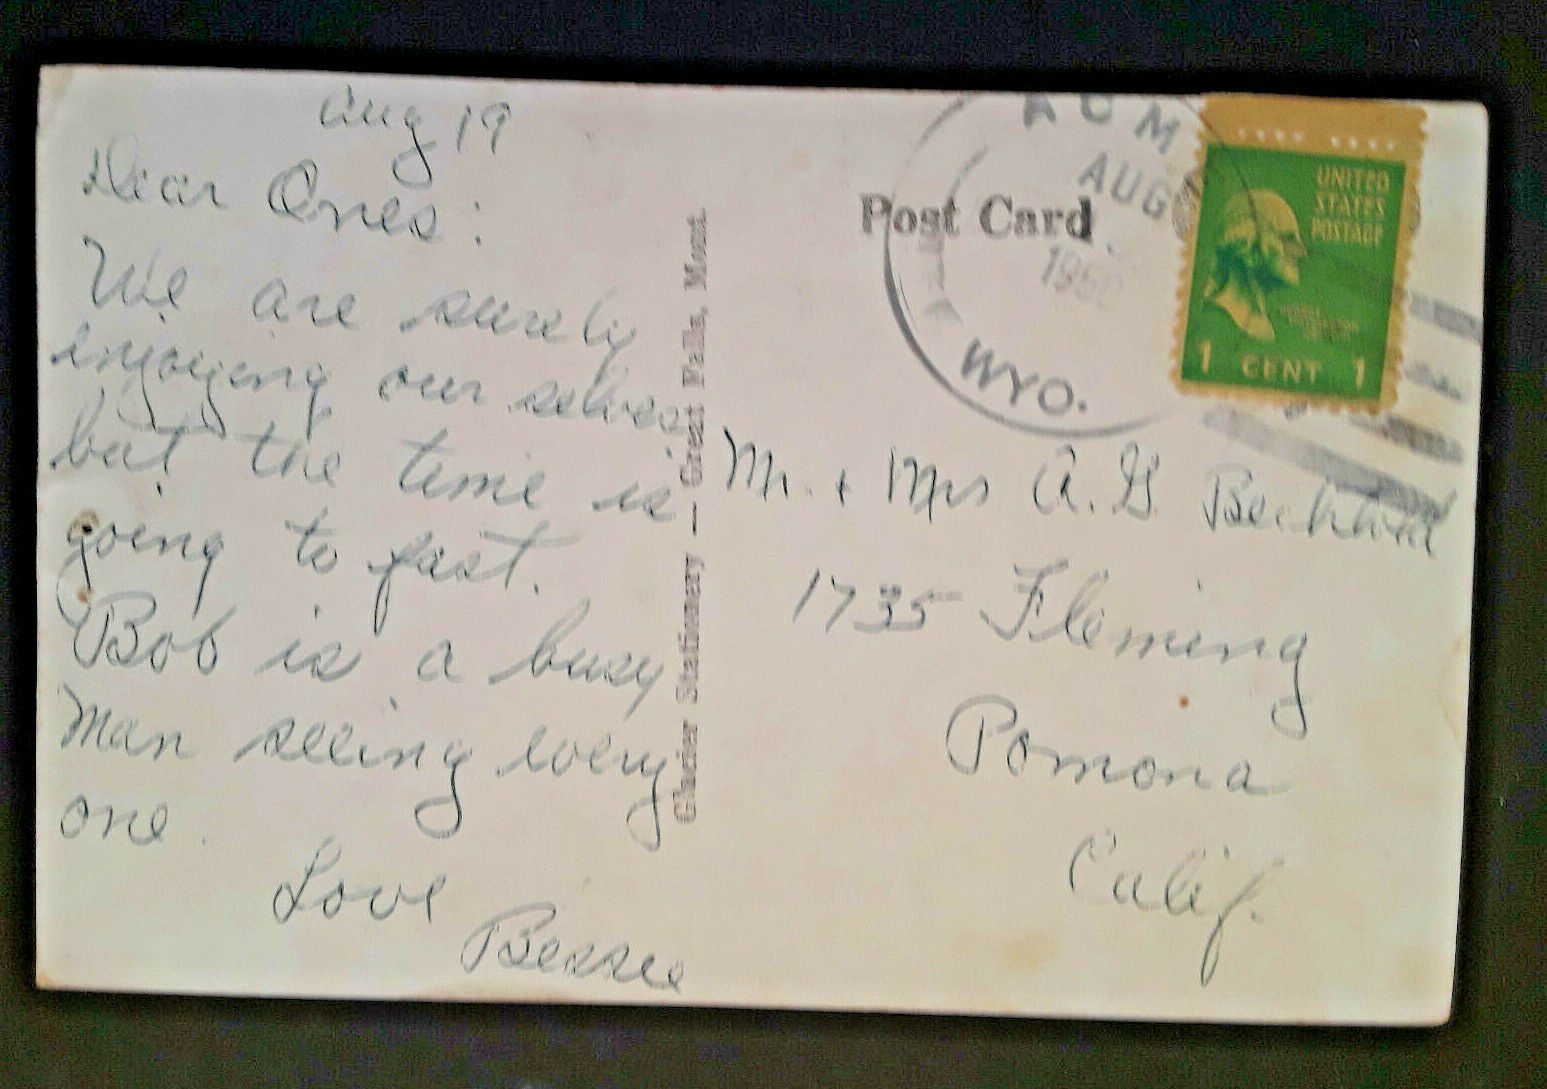 Aug 19
Dear Ones:
We are surely
enjoying our selves
but the time is
going to fast.
Bob is a busy
Man seeing every
one.
Love
Bessie
Glacier Stationery — Great Falls, Mont.
Post Card
ACM
AUG
195
WYO.
UNITED
STATES
POSTAGE
1 CENT 1
Mr. + Mrs A. G.
1735 Fleming
Pomona
Calif.